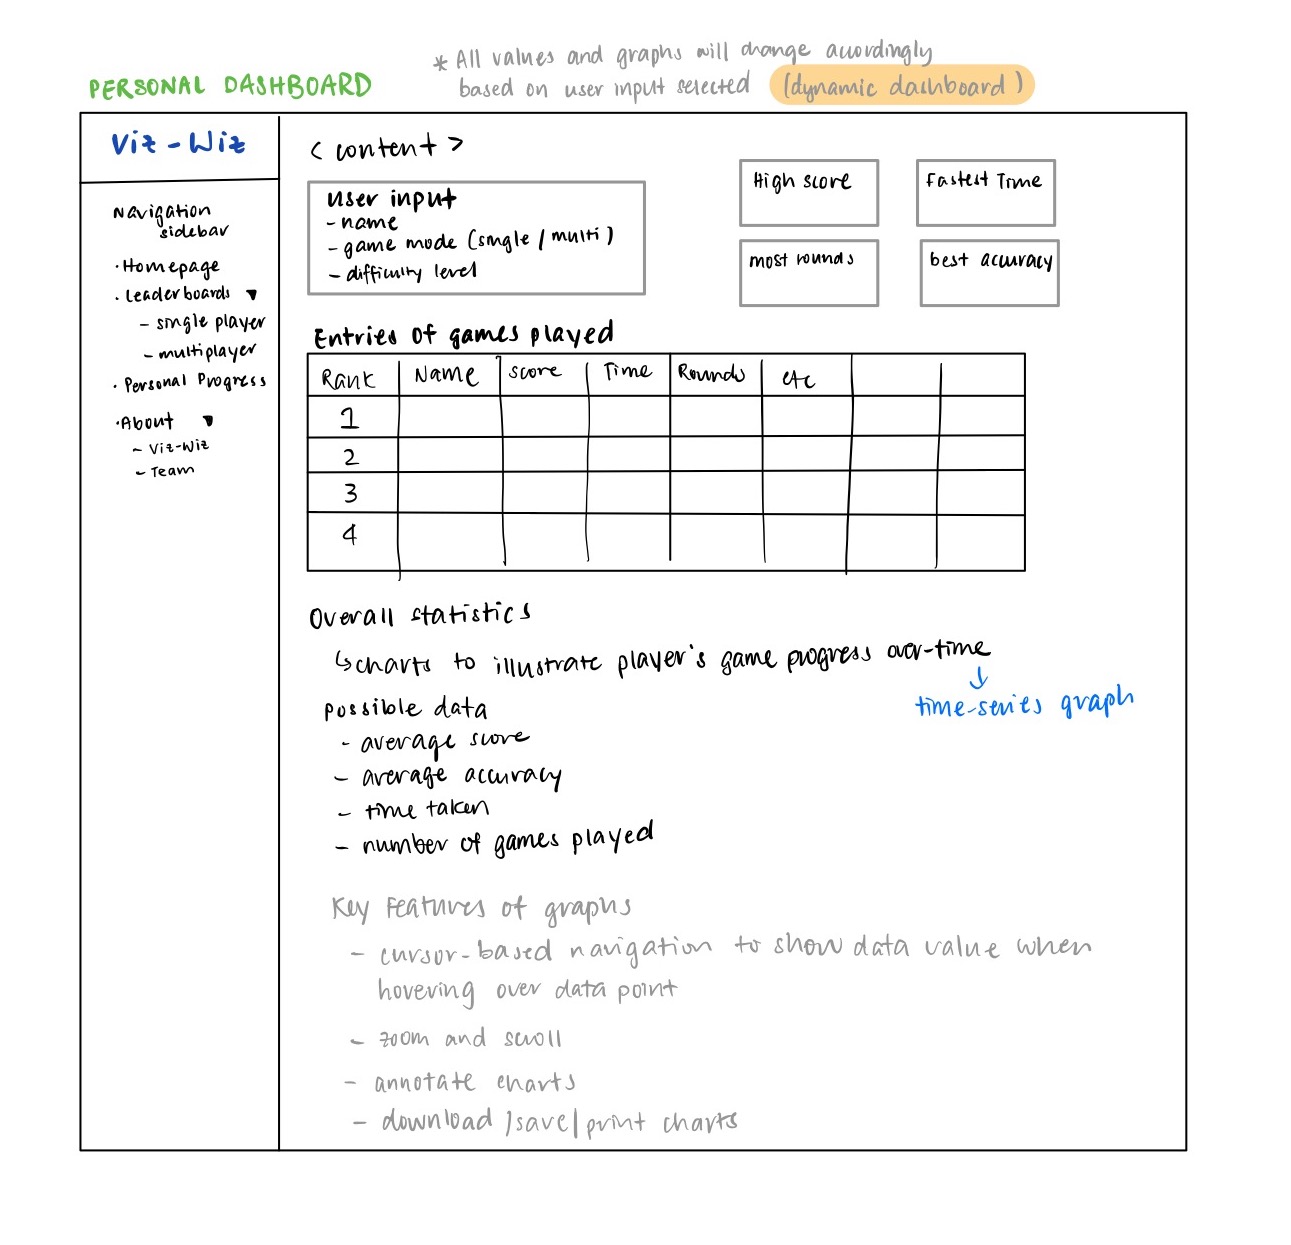 PERSONAL DASHBOARD
* All values and graphs will change accordingly
based on user input selected (dynamic dashboard)
Viz-Wiz
Navigation
sidebar
· Homepage
· Leaderboards ▼
- single player
- multiplayer
· Personal Progress
· About ▼
- Viz-Wiz
- Team
<content>
User input
- name
- game mode (single / multi)
- difficulty level
High score
Fastest Time
most rounds
best accuracy
Entries of games played
Rank Name Score Time Rounds etc
1
2
3
4
Overall statistics
↳ charts to illustrate player's game progress over-time
↓
time-series graph
possible data
- average score
- average accuracy
- time taken
- number of games played
Key features of graphs
- cursor-based navigation to show data value when
hovering over data point
- zoom and scroll
- annotate charts
- download /save/print charts